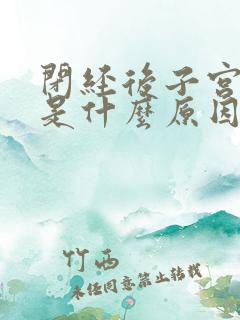 閉經後子宮
是什麼原因
竹西
未任同意禁止轉載